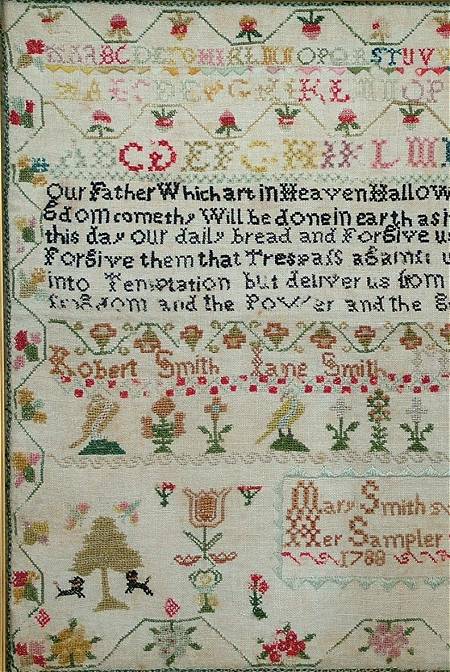 ABCDEFGHIKLMNOPQRSTUV
ABCDEFGHIKLMNOP
ABCDEFGHIKLM
Our Father Which art in Heaven Hallow
gdom come thy Will be done in earth as i
this day our daily bread and Forgive us
Forgive them that Trespass against u
into Temptation but deliver us from
and the Power and the
Robert Smith Jane Smith
Mary Smith
Her Sampler
1788